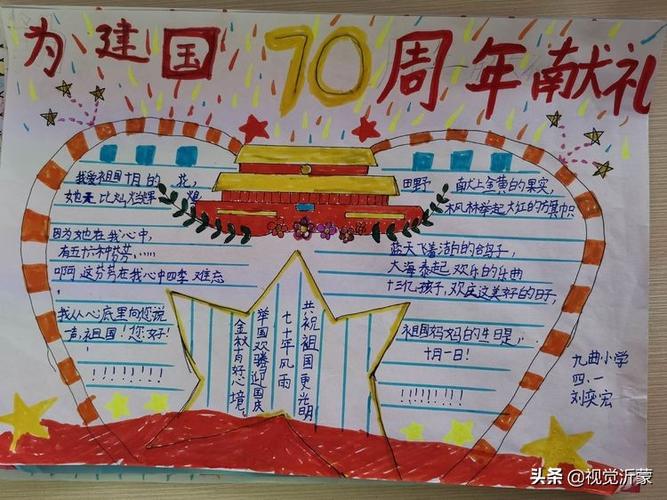 为建国70周年献礼
我爱祖国十月的 花,
她是比灿烂辉 煌
因为她在我心中,
有五十六种芬芳……
啊 这芬芳在我心中四季难忘
,
我从心底里向您说
声,祖国!您好!
!
!!!!!!!
共祝祖国更光明
七十年风雨
举国欢腾迎国庆
金秋有好心境。
田野 献上金黄的果实,
枫林举起火红的旗帜
蓝天飞着洁白的鸽子,
大海奏起欢乐的乐曲
十三亿孩子,欢庆这美好的日子,
祖国妈妈的生日是,..
十月一日!
!!!!!!!
九曲小学
四.一
刘奕宏
头条 @视觉沂蒙